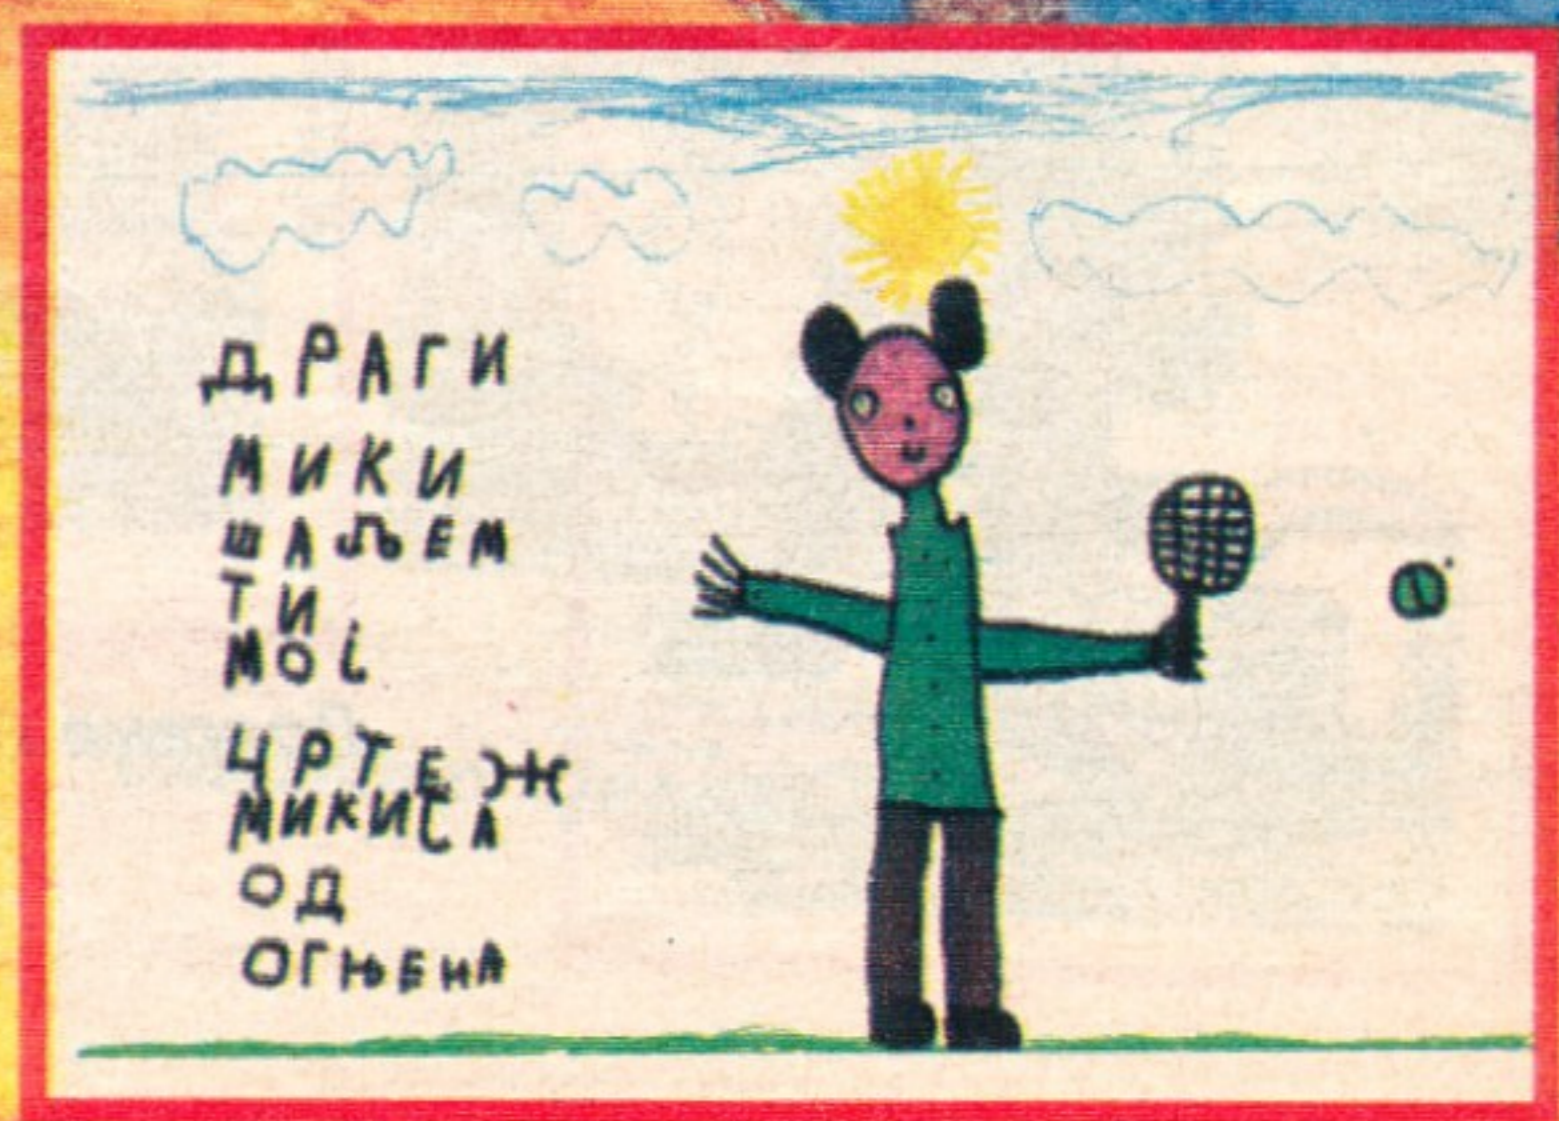 ДРАГИ
МИКИ
ШАЉЕМ
ТИ
МОЈ
ЦРТЕЖ
МИКИЈА
ОД
ОГЊЕНА